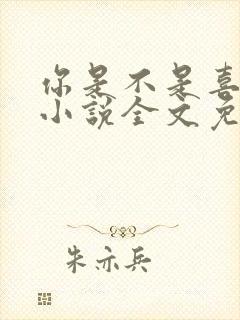 你是不是喜
小说全文免
朱亦兵